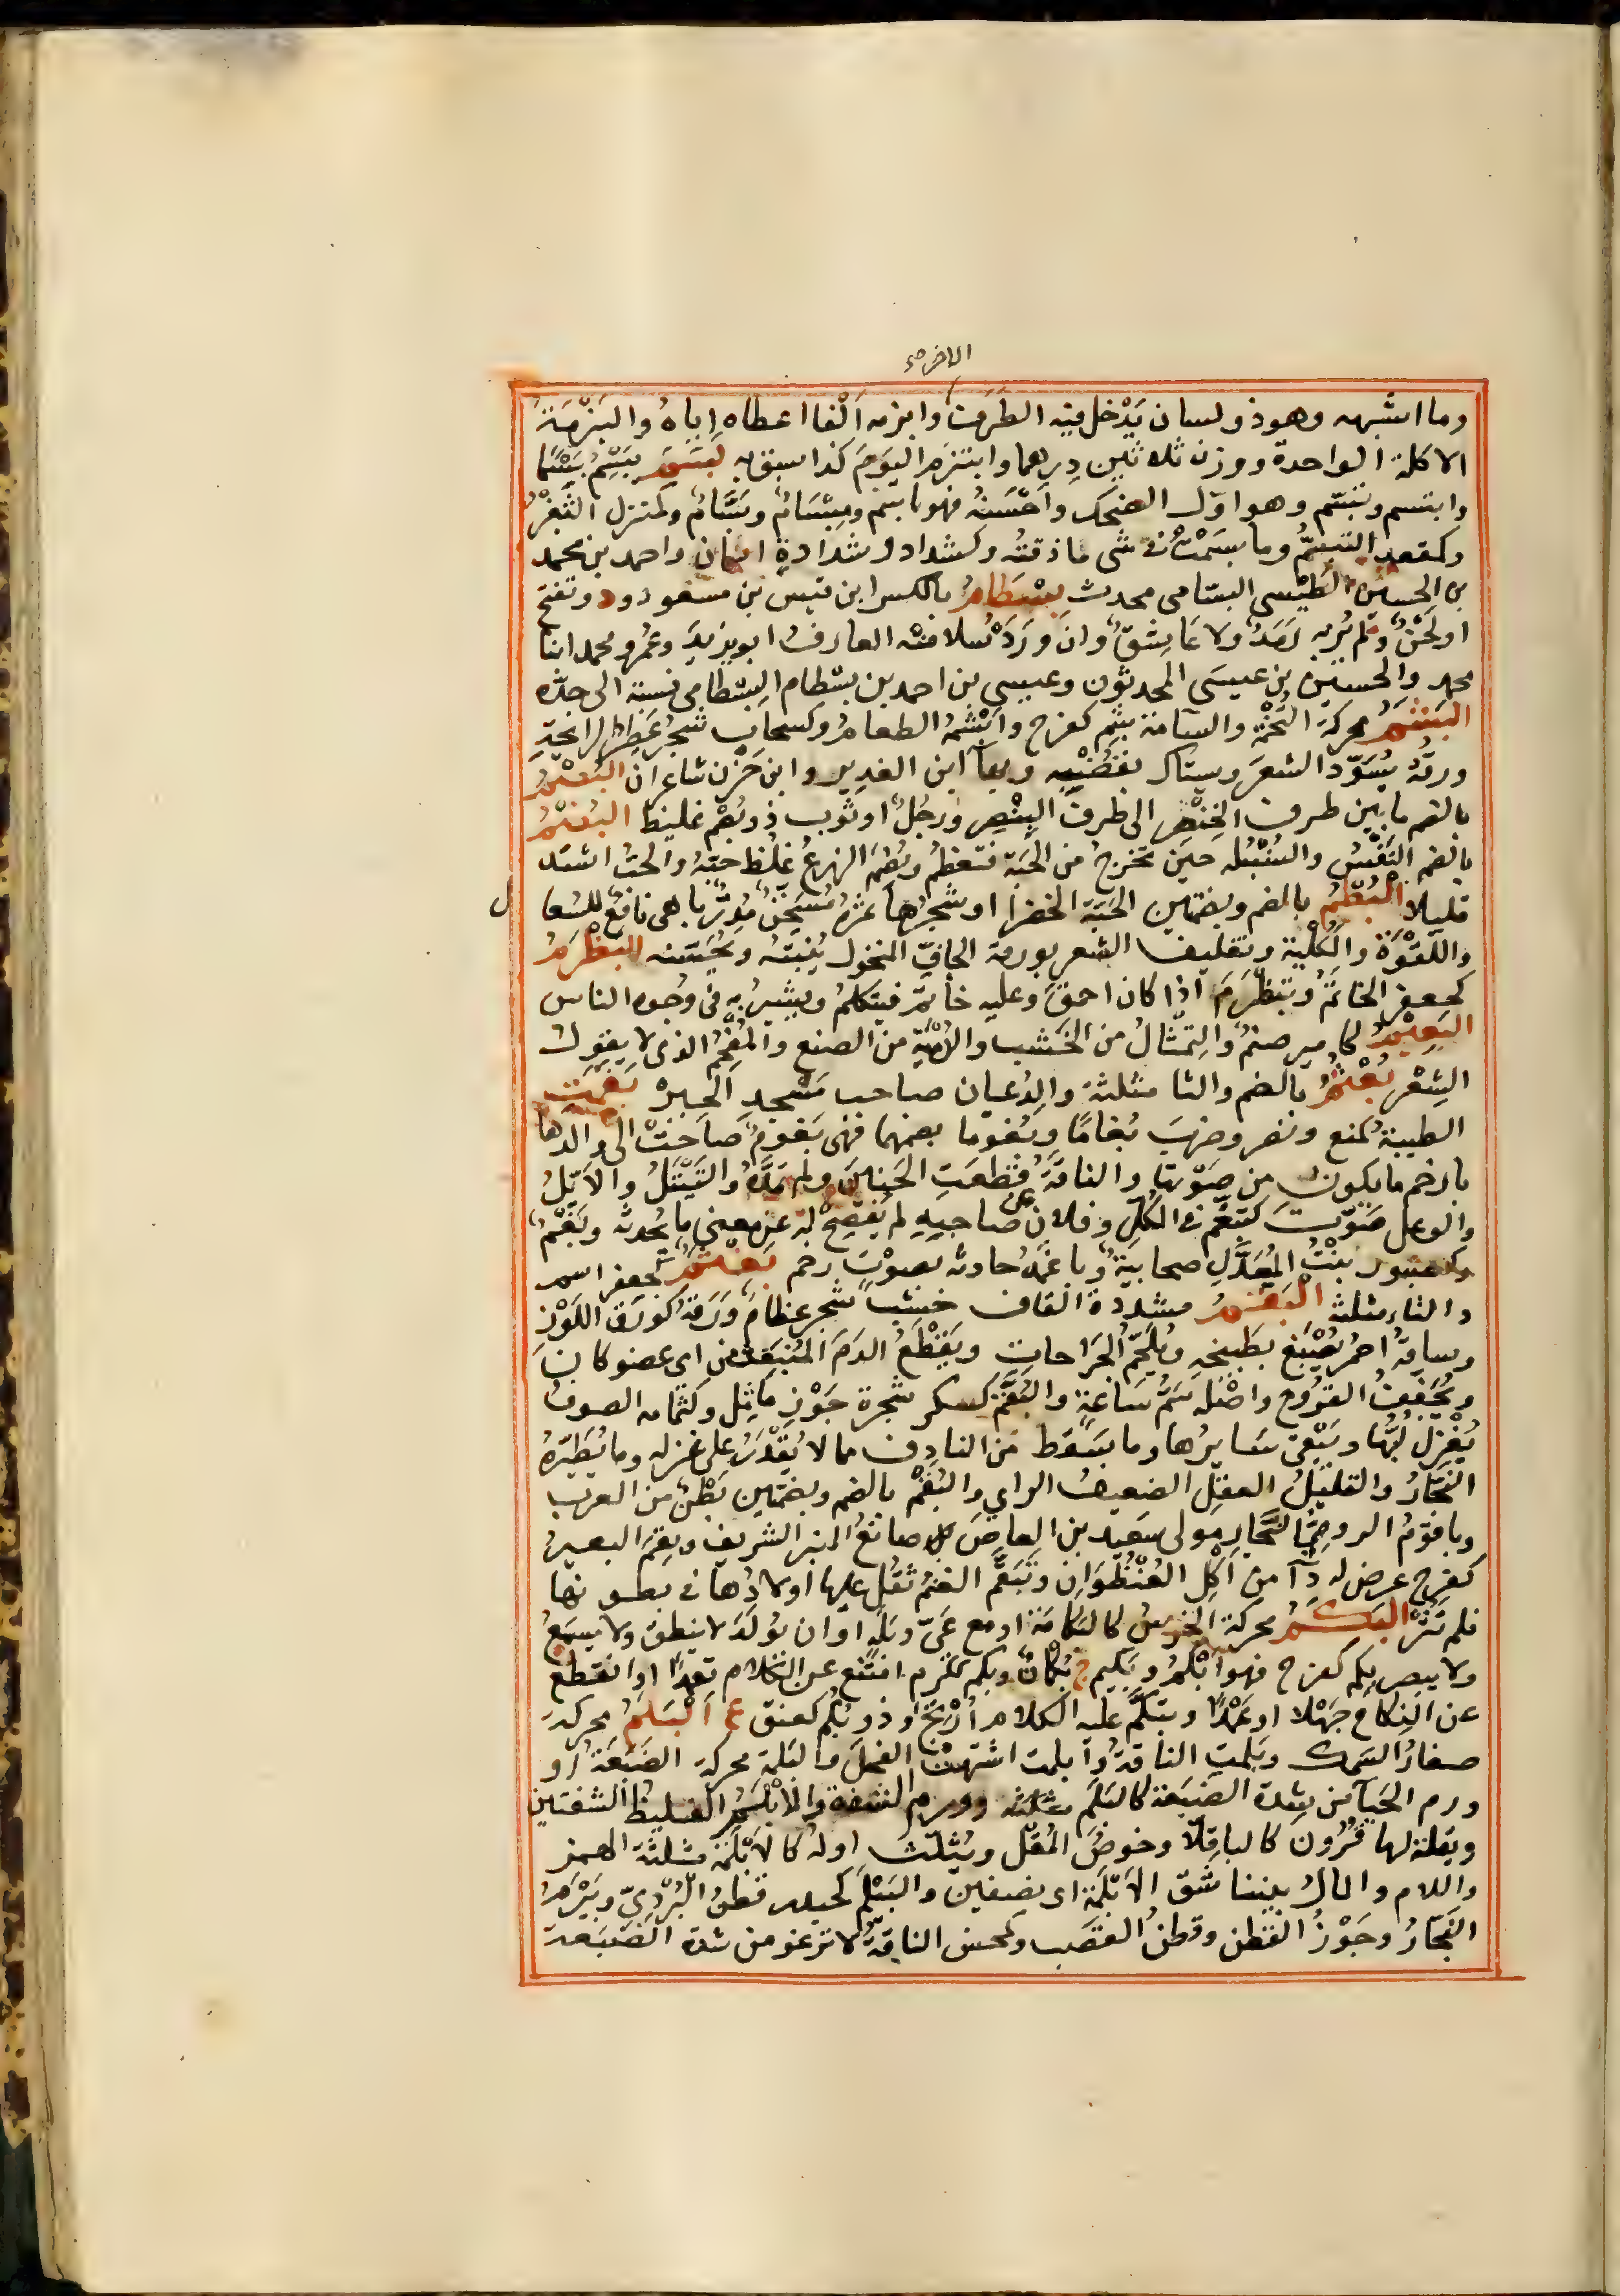 الاخر صح
وما اشبهه وهو ذو لسان يَدْخل فيه الطرف وابزمه اَلْفا اعطاه اِياهُ والبَزْمَة
الاكلة الواحدة ووزن ثلاثين دِرهما وابتزم اليَومَ كذا سبق به بَسَمَ يَبْسِمُ بَسْمًا
وابتسم وتبسّم وهو اوّل الضحك واَحْسَنُه فهو باسم ومِبْسَامٌ وبَسَّامٌ وكمنزل الثَغْرُ
وكمقعد التبسّمُ وما بسَمْتُ فى شى ماذقته وكشداد وشدادة اسمان واحمد بن محمد
بن الحسين الطَبْسى البسّامى محدث بِسْطَامُ بالكسر ابن قيس بن مسعود ود وتفتح
اولَحْنٌ ولم يُرَ به رَمَدٌ ولا عَاشِقٌ وان وَرَدَ سُلا منه العارف ابو يزيد وعُمر ومحمد ابنا
محمد والحسين بن عيسَى المحدثون وعيسي بن احمد بن بسْطام البِسْطامى نسبة الى جدّه
البَشَمُ محركة التخمة والسآمة بشِم كفرح وابْشَمهُ الطعامُ وكسحاب شجرٌ عَطِرُ الرائحةِ
ورقه يُسَوّد الشعَر ويستاك بقُضُبِه وبها ابن الغدير وابن حَزْن شاعران البُصْمُ
بالضم ما بين طرف الخِنْصِر الى طرف البِنْصِر ورجُلٌ او ثوب ذو بُصْمٍ غليظ البُضْمُ
بالضم النَفْسُ والسُنْبُله حين تخرج من الحَبّة فتعظمُ وبَضَم الزرعُ غلُظ حبّهُ والحبُّ اشتد
قليلا البُطْمُ بالضم وبضمتين الحَبّة الخضرا او شجرُها ثمره مُسَخِّنٌ مُدِرٌّ باهى نافع للسُعا ل
واللَقْوَة والكُلْية وتغليف الشعر بورقه الجافّ المنخول يُنبتُه ويُحَسّنه البَظْرَمُ
كجعفر الخاتَمُ وتَبَظْرَمَ اذا كان احمقَ وعليه خاتم فيتكلمُ ويشيرُ به فى وجوه الناس
البَعِيمُ كامير صنمٌ والتِمثَالُ من الخَشَب والدُمْيَة من الصمغ والمُفْحَمُ الذى لا يقول
الشِعْر بُعْثُمُ بالضم والثا مثلثة والد عيان صاحب مَسْجدِ الجِيزة بَغَمَتِ
الظبية كمنع ونصر وضرب بُغامًا وبُغُوما بضمهما فهى بَغومٌ صاحَتْ الى ولدها
بارخم ما يكون من صَوْتها والناقة قَطعَت الحَنين ولم تمدّه والتَيْتَلُ والاَيّلُ
والوعل صَوّتَ كتبغّم فى الكلّ وفلان صاحبه لم يُفْصِحْ له عن معنى ما يُحدثه وبَغَمٌ
وكصبور بنْتُ المعَدَّلِ صحابيةٌ وباغَمَهُ حادثه بصوْت رخم بَغْثَمُ كجعفر اسم
والثاء مثلثة البَقّمُ مشددة القاف خشبٌ شجر عظامٌ وَرَقُهُ كورَق اللَوْزِ
وساقُهُ احمُر يُصْبَغ بطَبيخه ويُلَحِّمُ الجَراحاتِ ويَقْطَعُ الدَمَ المُنْبَعِث من اى عضو كان
ويُجَفِّفُ القروح واصْله سَمُّ سَاعةٍ والبُقَّم كسكر شجرة جَوْز مَاثِل وكثمامه الصوف
يُغْزَلُ لُبُّها ويَبْقى سَايرُها وما يسقط من النادف مما لا يُقْدَرُ على غزله وما يُطَيّرهُ
النجّارُ والقليلُ العقل الضعيفُ الراي والبُقْمُ بالضم وبضمتين بَطْنٌ من العرب
وباقومُ الروميُّ النجّار مولى سَعيد بن العاصِ صانعُ المنبر الشريف وبقِمَ البعيرُ
كفرح عرض له دآ من اَكل العُنْظُوَانِ وتَبَقّم الغنمُ ثقُل عليها اولادُها فى بطونها
فلم تَثُرْ البَكَمُ محركة الخرسُ كالبكامة او مع عَىّ وبَلَهٍ او ان يُولَدَ لا ينطق ولا يسمَعُ
ولا يبصر بكم كفرح فهو اَبْكَمُ وبَكيم ج بُكْمانٌ وبكم ككرم امتنع عن الكلام تعمدًا او انقطع
عن النكاح جَهْلا او عَمْدًا وتبكّم عليه الكلام اُرْتجَ وذو بُكُم كعنق ع البَلَمُ محركة
صغارُ السمك وبَلمتِ الناقةُ وابلمت اشتهت الفحل والبَلَمة محركة الضَبَعَة او
ورم الحَيآ من شِدة الضبَعَة كالبَلَم مثلثه وورم الشفة والابْلمُ الغليظُ الشفتين
وبقلة لها قُرُون كالباقلّا وخوصُ المُقْل ويُثَلّث اوله كالاَبْلَمَة مثلثة الهمز
واللام والمالُ بيننا شق الاَبْلَمَة اى نصفين والبَيْلَم كحيدر قطنُ البُرْدِىّ وبَيْرَمُ
النجّارُ وجَوْزُ القطن وقطنُ القصَب وكمحسن الناقةُ لا ترغو من شدة الضَبَعة